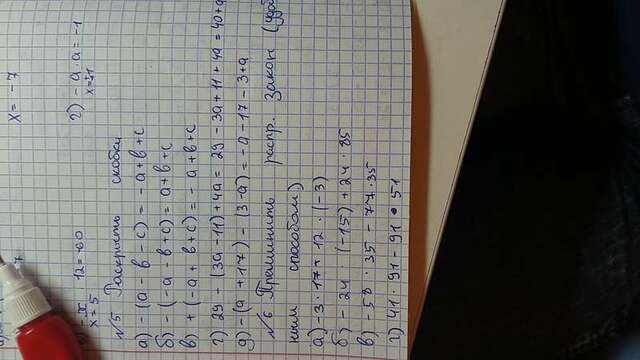 x = -7
12 = 60
x = 5
2) -a·a = -1
x=±1
№5 Раскрыть скобки
а) -(a - b - c) = -a+b+c
б) -(-a - b + c) = a+b+c
в) +(-a + b + c) = -a+b+c
г) 29 - (3a - 11) + 4a = 29 - 3a + 11 + 4a = 40+a
д) -(a + 17) - (3-a) = -a - 17 - 3+a
№6 Применить распр. закон (удоб
ным способом)
а) -3·17 + 12·(-3)
б) -24·(-15) + 24·85
в) -58·35 - 77·35
г) 41·91 - 91·51